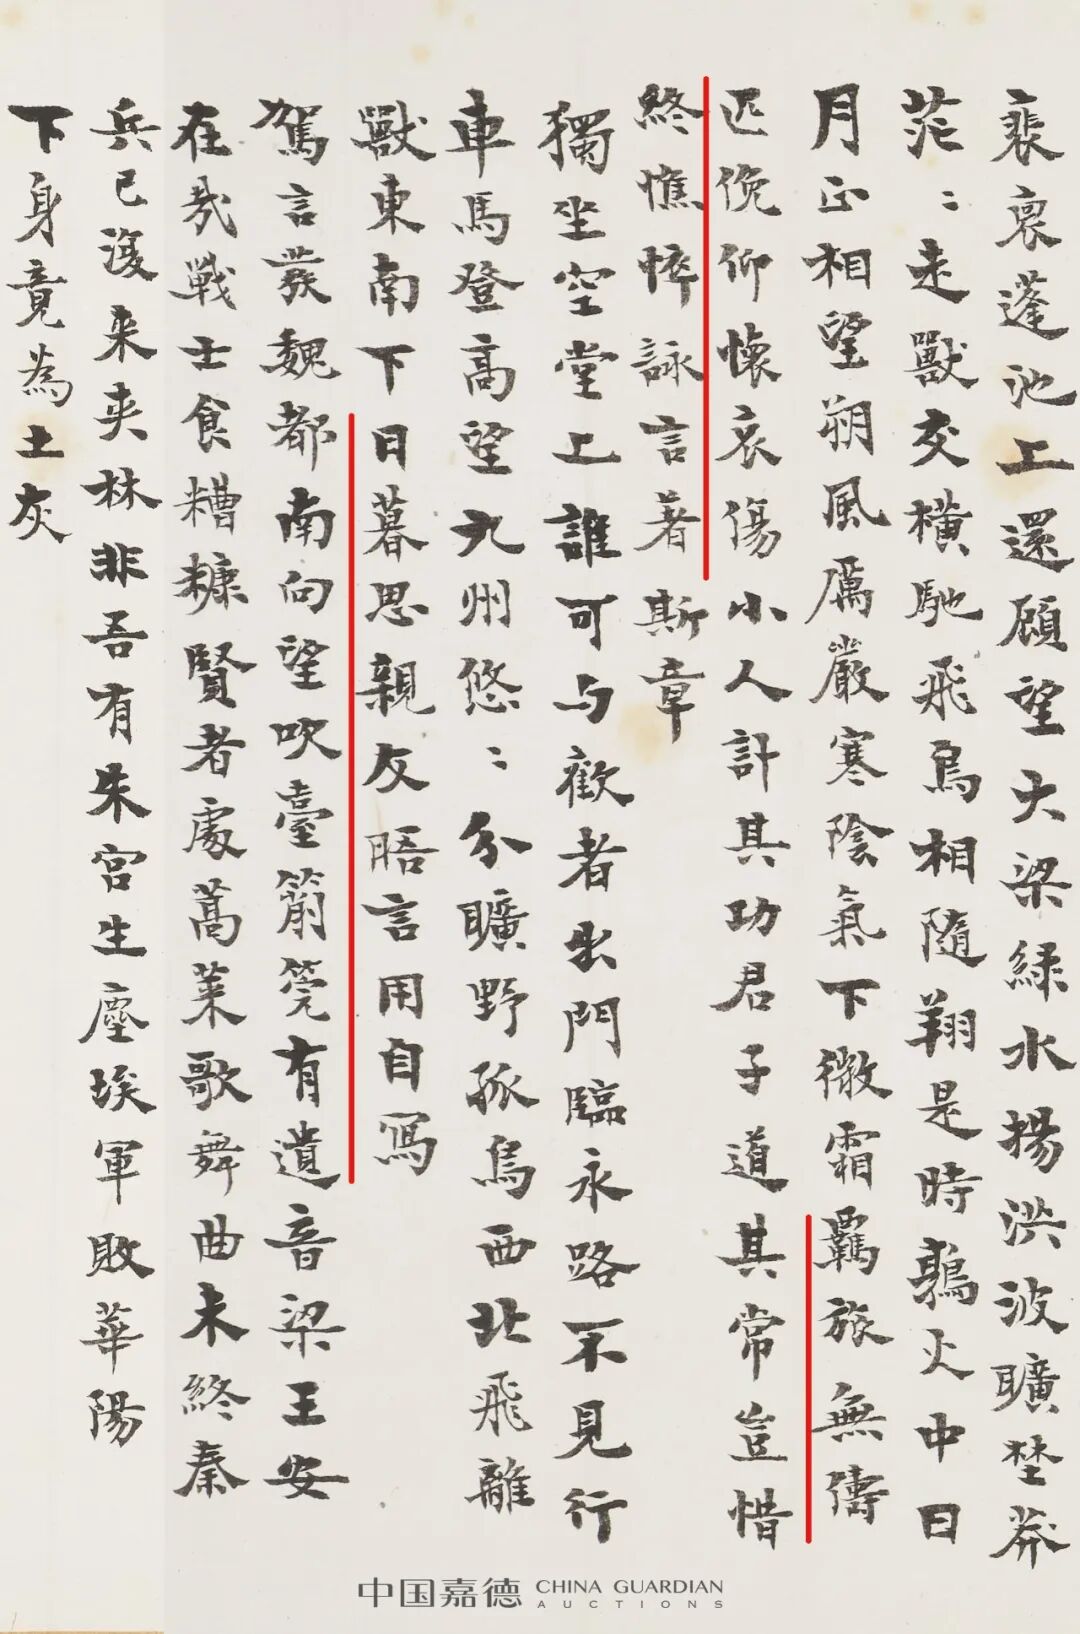 裴裵蓬池上還顧望大梁緑水揚洪波曠埜莽
茫:走獸交横馳飛鳥相隨翔是時鶉火中日
月正相望朔風厲嚴寒陰氣下微霜羈旅無儔
匹俛仰懷哀傷小人計其功君子道其常豈惜
終憔悴詠言著斯章
獨坐空堂上誰可与歡者出門臨永路不見行
車馬登高望九州悠:分曠野孤鳥西北飛離
獸東南下日暮思親友晤言用自寫
駕言發魏都南向望吹臺簫筦有遺音梁王安
在哉戰士食糟糠賢者處蒿萊歌舞曲未終秦
兵已復来夾林非吾有朱宫生塵埃軍敗華陽
下身竟為土灰
中国嘉德 CHINA GUARDIAN
AUCTIONS